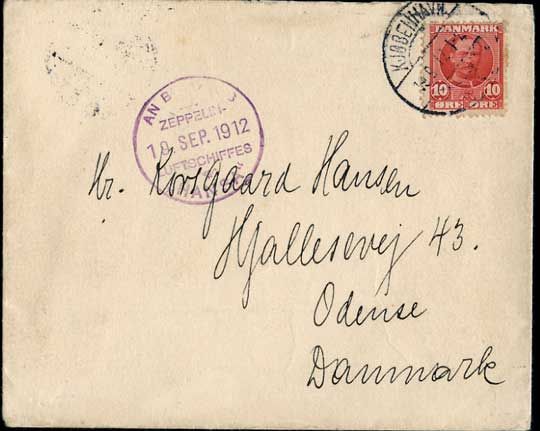 KJØBENHAVN
DANMARK
10 10
ØRE ØRE
AN B
ZEPPELIN-
19 SEP. 1912
LUFTSCHIFFES
HANSA
Hr. Korsgaard Hansen
Hjallesevej 43.
Odense
Danmark